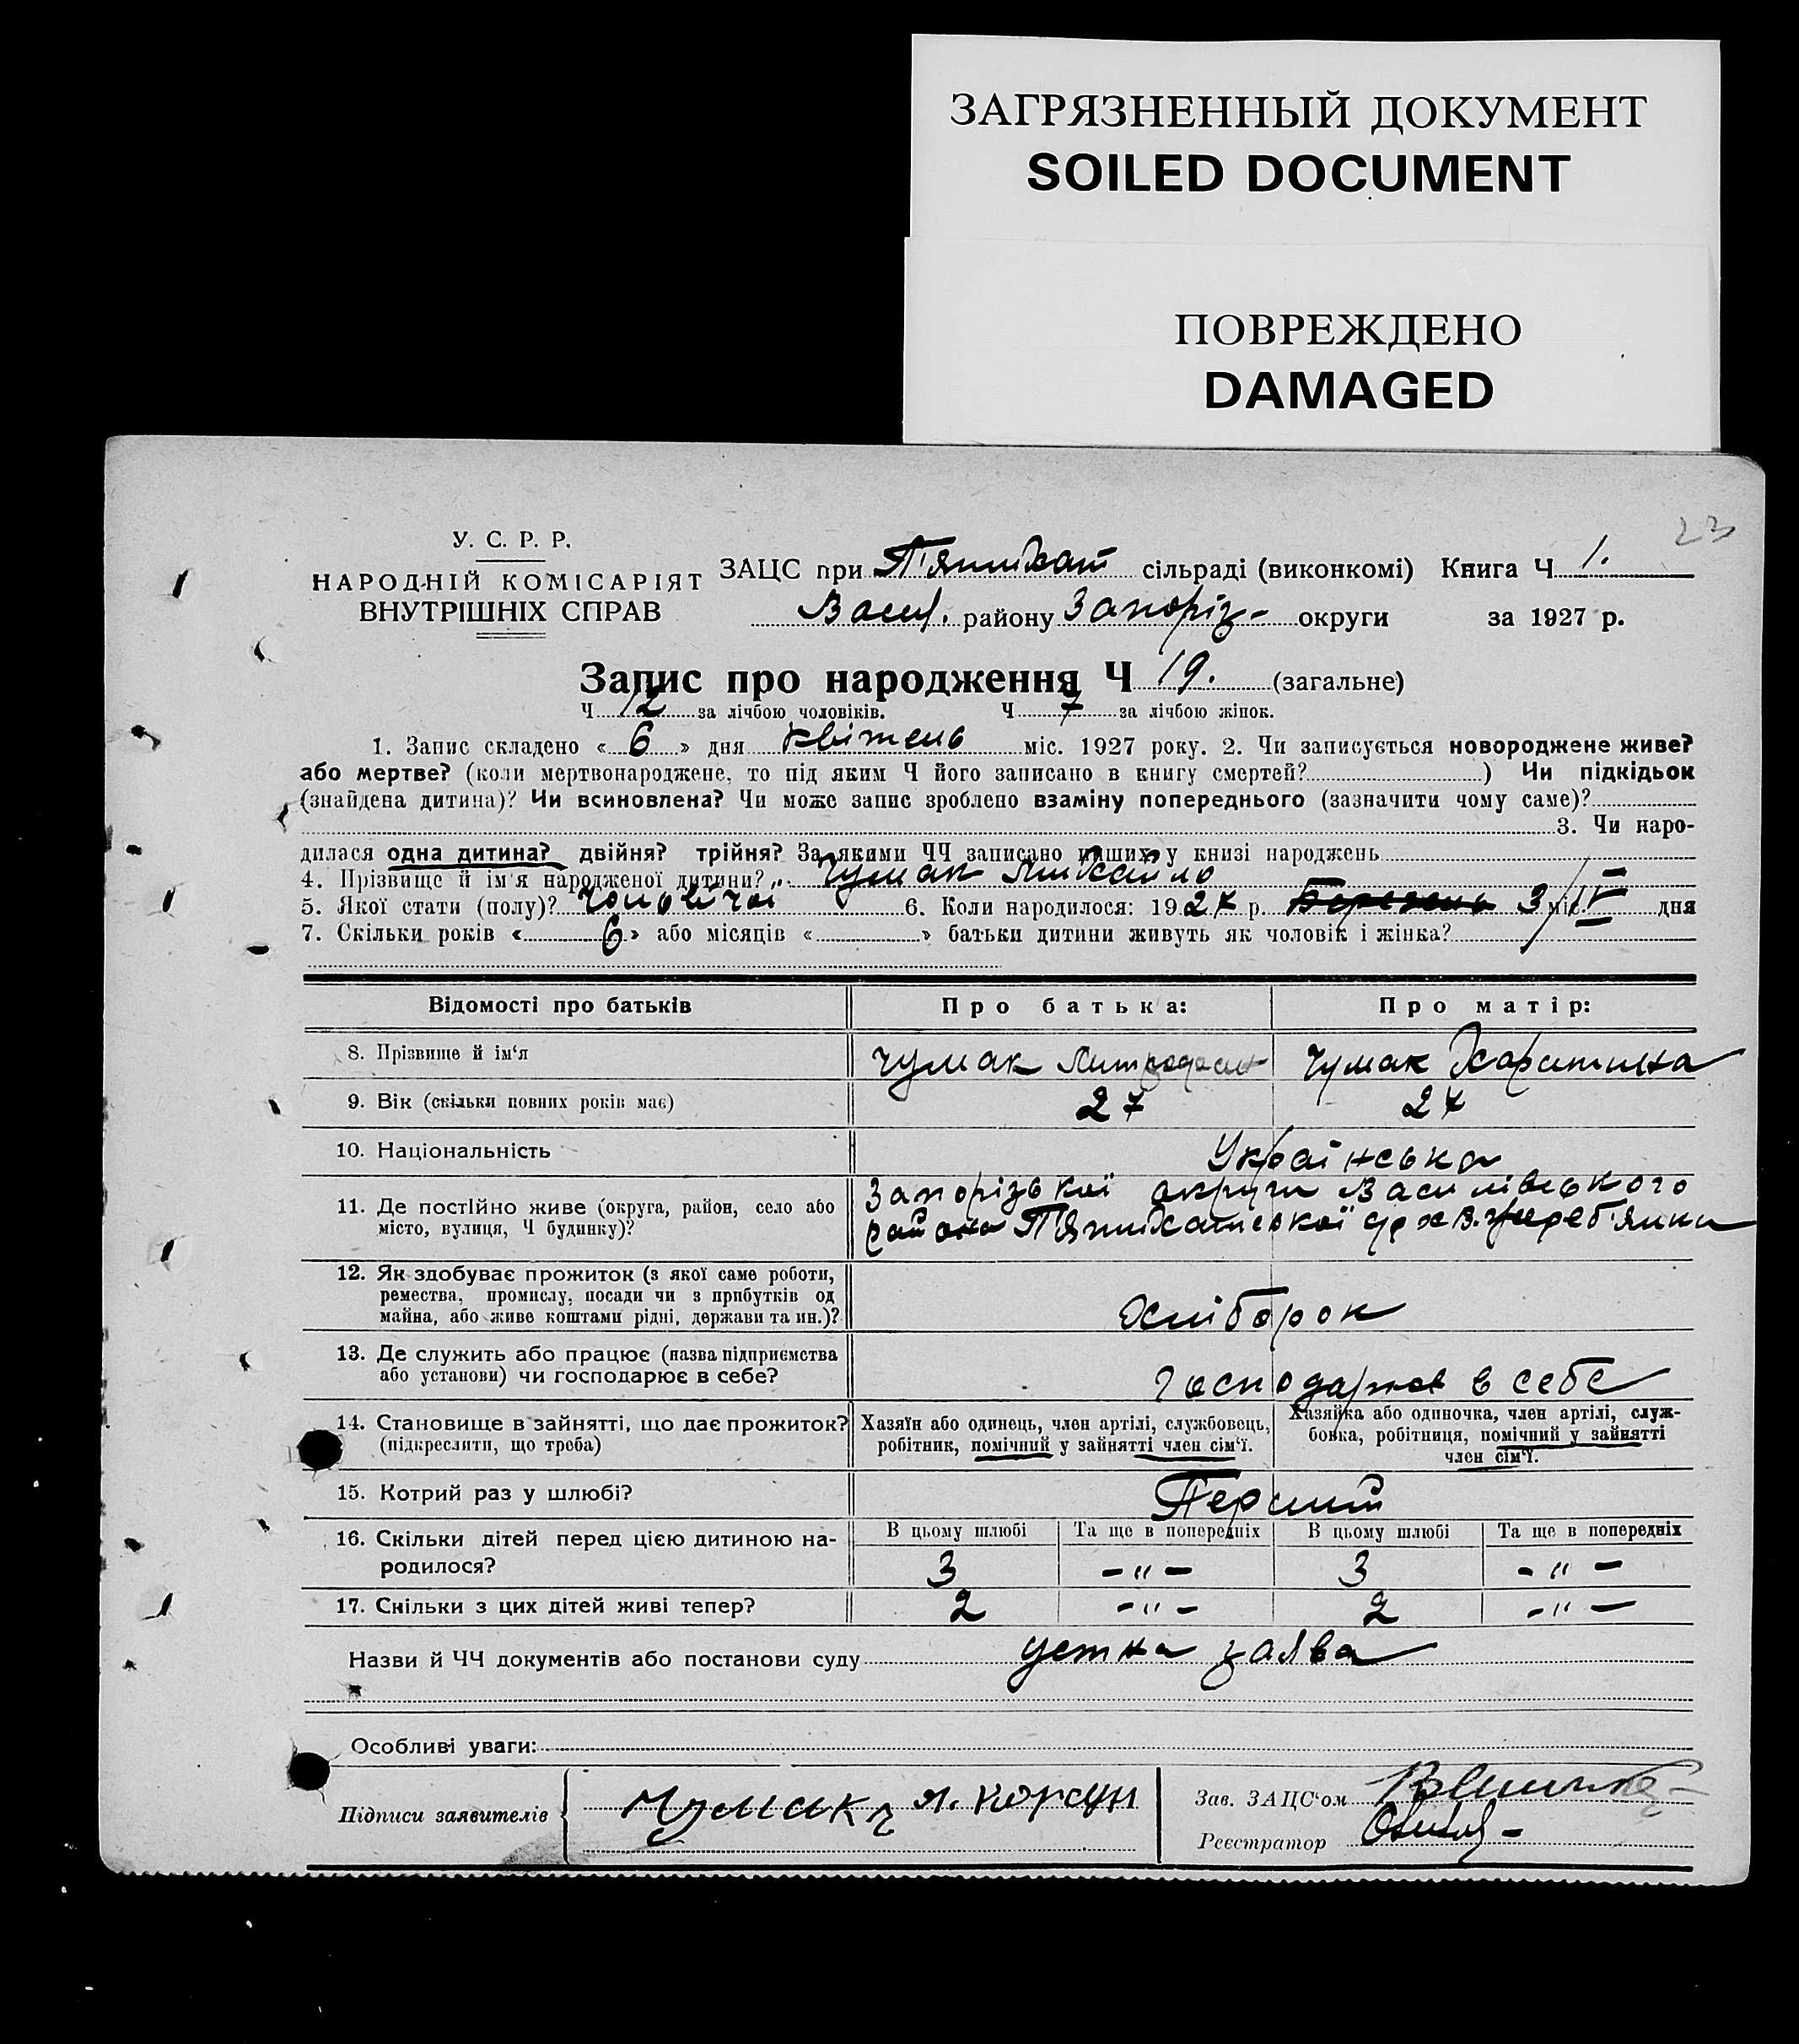 ЗАГРЯЗНЕННЫЙ ДОКУМЕНТ
SOILED DOCUMENT
ПОВРЕЖДЕНО
DAMAGED
23
У. С. Р. Р.
НАРОДНІЙ КОМІСАРІЯТ
ВНУТРІШНІХ СПРАВ
ЗАЦС при П'ятихат сільраді (виконкомі) Книга Ч 1.
Васил. району Запоріз- округи за 1927 р.
Запис про народження Ч 19. (загальне)
Ч 12 за лічбою чоловіків. Ч 7 за лічбою жінок.
1. Запис складено « 6 » дня квітень міс. 1927 року. 2. Чи записується новороджене живе?
або мертве? (коли мертвонароджене, то під яким Ч його записано в книгу смертей? ) Чи підкідьок
(знайдена дитина)? Чи всиновлена? Чи може запис зроблено взаміну попереднього (зазначити чому саме)?
3. Чи наро-
дилася одна дитина? двійня? трійня? За якими ЧЧ записано инших у книзі народжень
4. Прізвище й ім'я народженої дитини? Чумак Михайло
5. Якої стати (полу)? Чоловічої 6. Коли народилося: 1927 р. Березень 3/IV міс. дня
7. Скільки років « 6 » або місяців « » батьки дитини живуть як чоловік і жінка?
Відомості про батьків Про батька: Про матір:
8. Прізвище й ім'я Чумак Митрофан Чумак Харитина
9. Вік (скільки повних років має) 27 27
10. Національність Українська
11. Де постійно живе (округа, район, село або
місто, вулиця, Ч будинку)?
Запорізької округи Василівського
района П'ятихатської с/р х В. Щереб'янки
12. Як здобуває прожиток (з якої саме роботи,
ремества, промислу, посади чи з прибутків од
майна, або живе коштами рідні, держави та ин.)?
Хліборон
13. Де служить або працює (назва підприємства
або установи) чи господарює в себе?
Господарює в себе
14. Становище в зайнятті, що дає прожиток?
(підкреслити, що треба)
Хазяїн або одинець, член артілі, службовець,
робітник, помічний у зайнятті член сім'ї.
Хазяйка або одиночка, член артілі, служ-
бовка, робітниця, помічний у зайнятті
член сім'ї.
15. Котрий раз у шлюбі? Перший
16. Скільки дітей перед цією дитиною на-
родилося?
В цьому шлюбі Та ще в попередніх В цьому шлюбі Та ще в попередніх
3 - " - 3 - " -
17. Скільки з цих дітей живі тепер? 2 - " - 2 - " -
Назви й ЧЧ документів або постанови суду устна заява
Особливі уваги:
Підписи заявителів Чумак М. Корсун
Зав. ЗАЦС'ом
Реєстратор